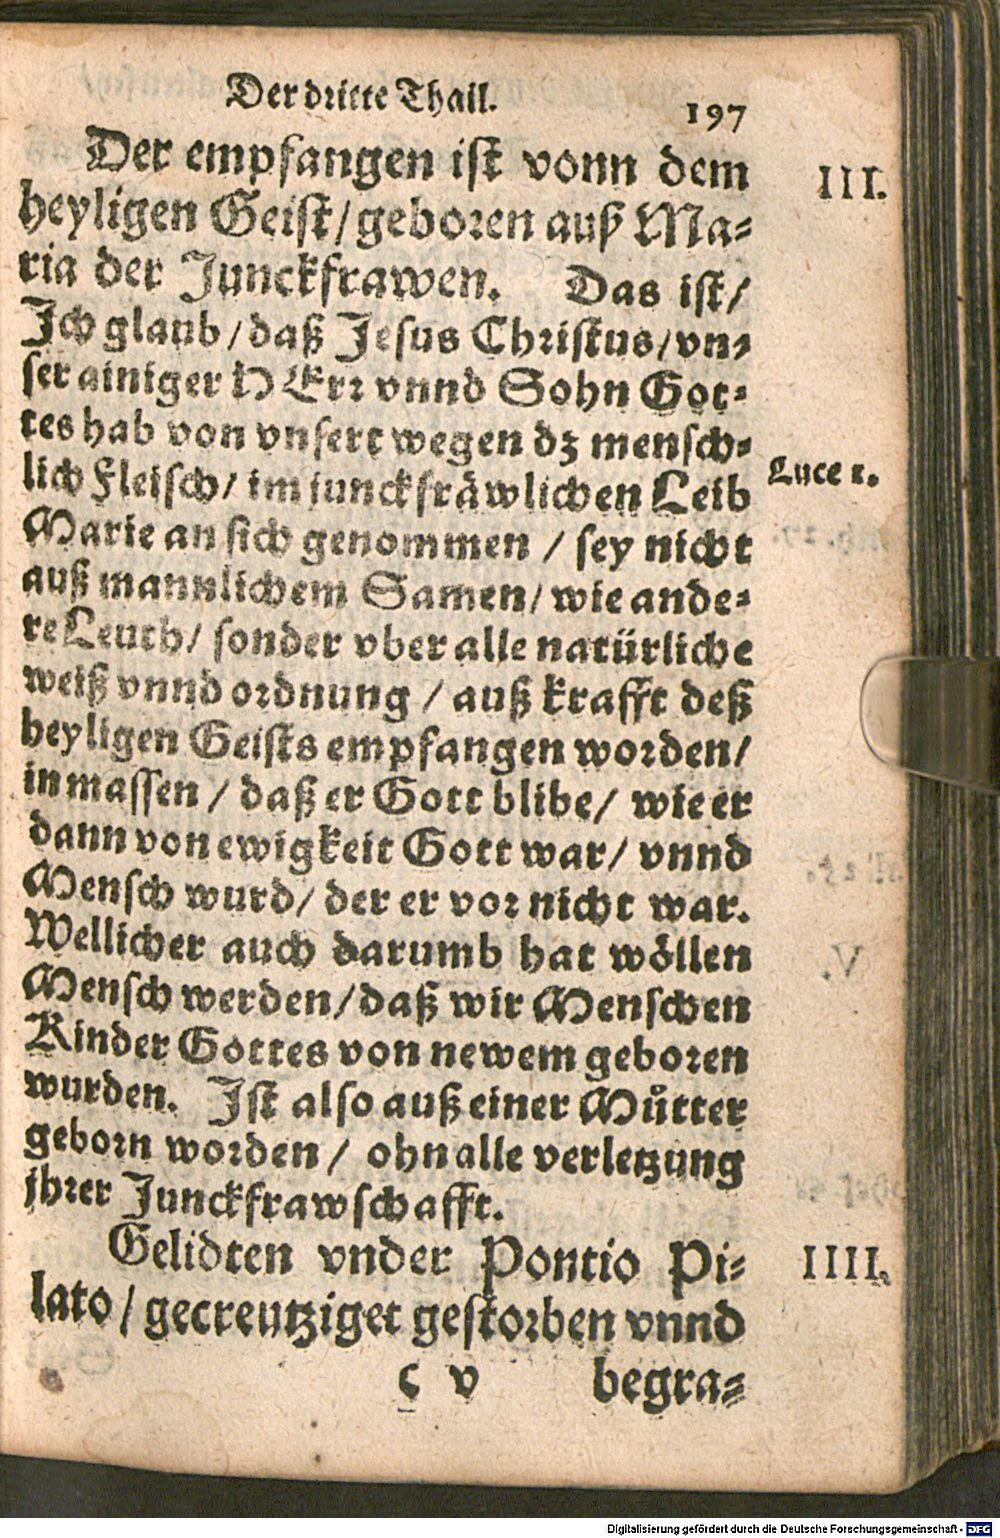 Der dritte Thail.
197
Der empfangen ist vonn dem
III.
heyligen Geist/geboren auß Ma-
ria der Junckfrawen. Das ist/
Ich glaub/daß Jesus Christus/vn-
ser ainiger HErr vnnd Sohn Got-
tes hab von vnsert wegen dz mensch-
lich Fleisch/ im junckfräwlichen Leib
Luce 1.
Marie an sich genommen / sey nicht
auß mannlichem Samen/ wie ande-
re Leuth/ sonder vber alle natürliche
weiß vnnd ordnung / auß krafft deß
heyligen Geists empfangen worden/
in massen / daß er Gott blibe/ wie er
dann von ewigkeit Gott war/ vnnd
Mensch wurd/ der er vor nicht war.
Wellicher auch darumb hat wöllen
Mensch werden/daß wir Menschen
Kinder Gottes von newem geboren
wurden. Ist also auß einer Můtter
geborn worden / ohn alle verletzung
jhrer Junckfrawschafft.
Gelidten vnder Pontio Pi-
IIII.
lato/gecreutziget gestorben vnnd
c v
begra-
Digitalisierung gefördert durch die Deutsche Forschungsgemeinschaft - DFG